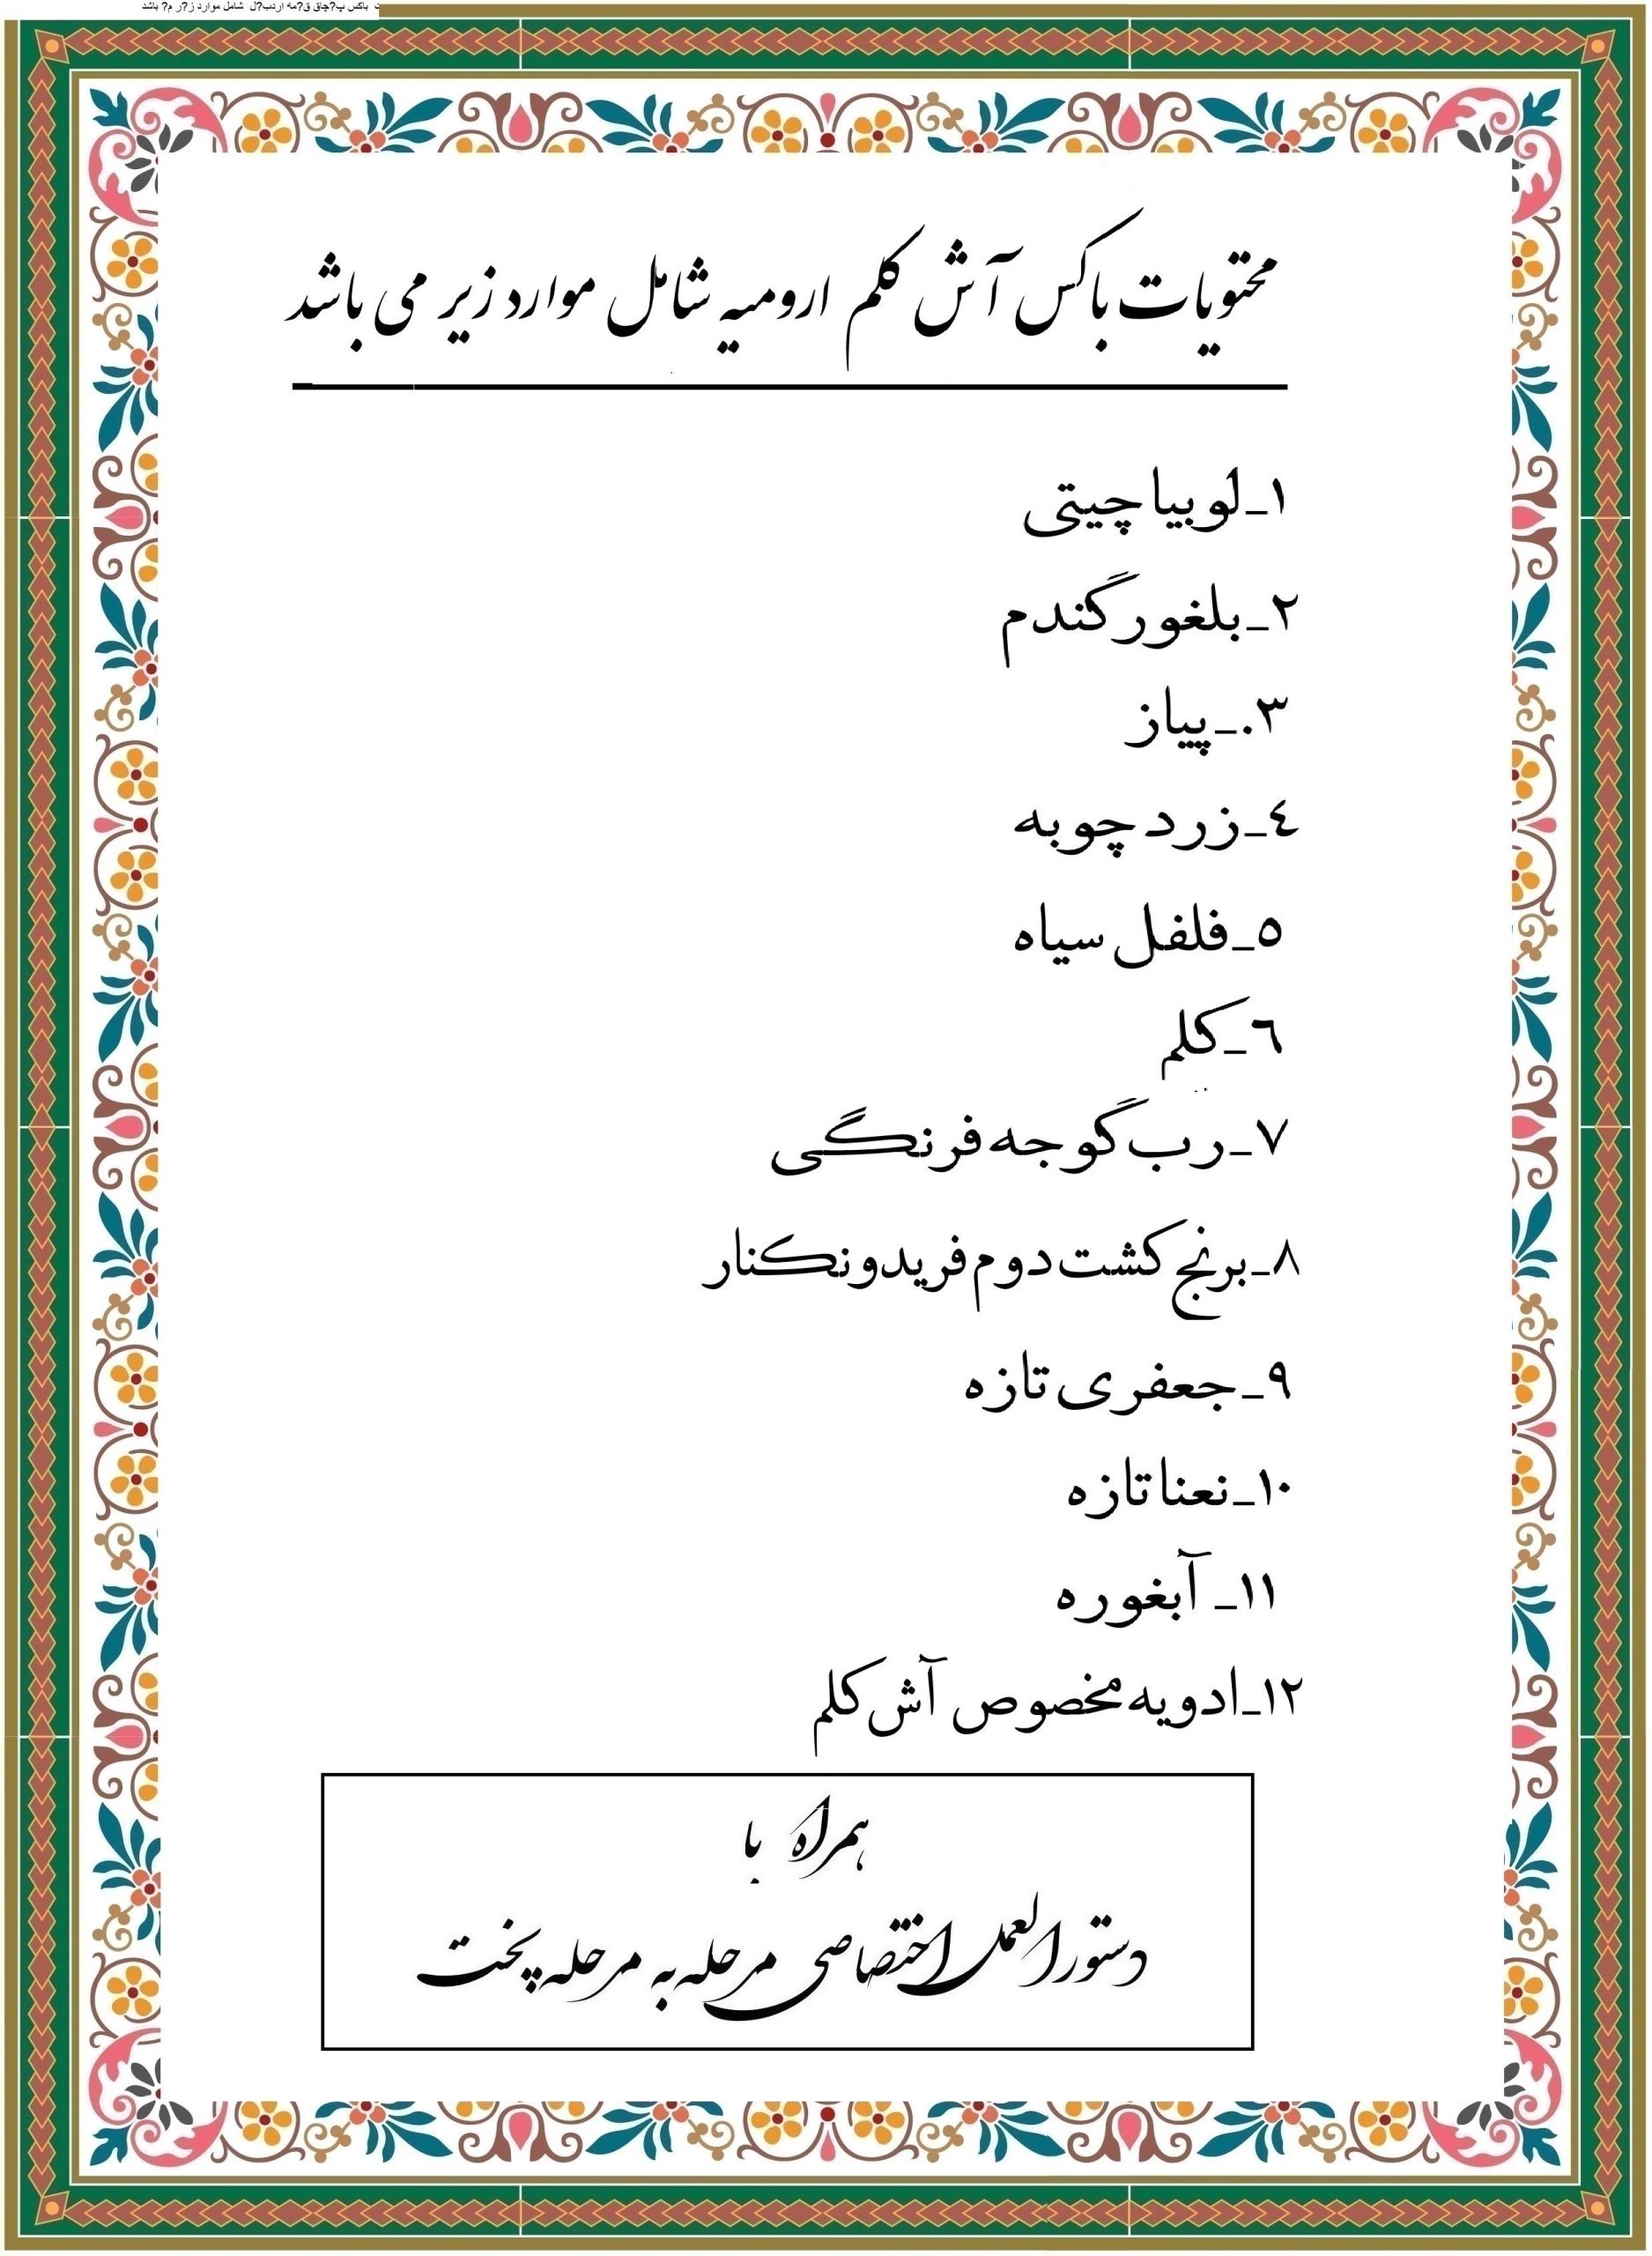 باکس پ?چاق ق?مه اردب?ل شامل موارد ز?ر م? باشد
محتویات باکس آش کلم ارومیه شامل موارد زیر می باشد
١_لوبیا چیتی
٢_بلغور گندم
٣._پیاز
٤_زرد چوبه
٥_فلفل سیاه
٦_کلم
٧_رب گوجه فرنگی
٨_برنج کشت دوم فریدونکنار
٩_جعفری تازه
١٠_نعنا تازه
١١_ آبغوره
١٢_ادویه مخصوص آش کلم
همراه با
دستورالعمل اختصاصی مرحله به مرحله پخت